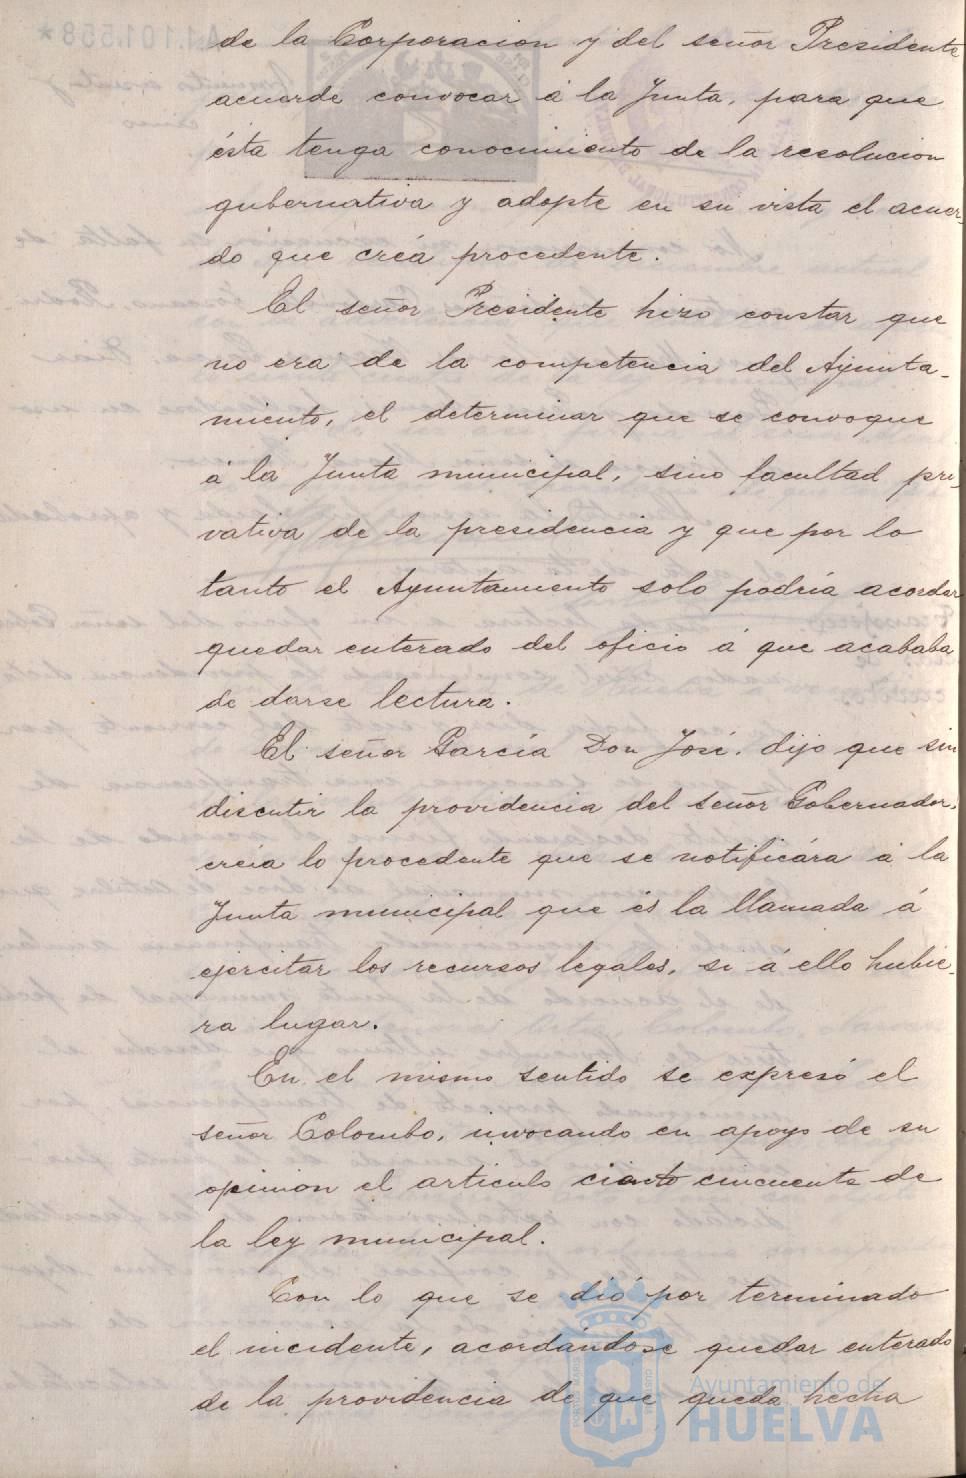 de la Corporacion y del señor Presidente
acuerde convocar á la Junta, para que
ésta tenga conocimiento de la resolucion
gubernativa y adopte en su vista el acuer-
do que créa procedente.
El señor Presidente hizo constar que
no era de la competencia del Ayunta-
miento, el determinar que se convoque
á la Junta municipal, sino facultad pri-
vativa de la presidencia y que por lo
tanto el Ayuntamiento solo podría acordar
quedar enterado del oficio á que acababa
de darse lectura.
El señor García Don José, dijo que sin
discutir la providencia del señor Gobernador,
creía lo procedente que se notificára á la
Junta municipal que és la llamada á
ejercitar los recursos legales, si á ello hubie-
ra lugar.
En el mismo sentido se expresó el
señor Colombo, invocando en apoyo de su
opinion el articulo ciento cincuenta de
la ley municipal.
Con lo que se dió por terminado
el incidente, acordándose quedar enterado
de la providencia de que queda hecha
Ayuntamiento de
HUELVA